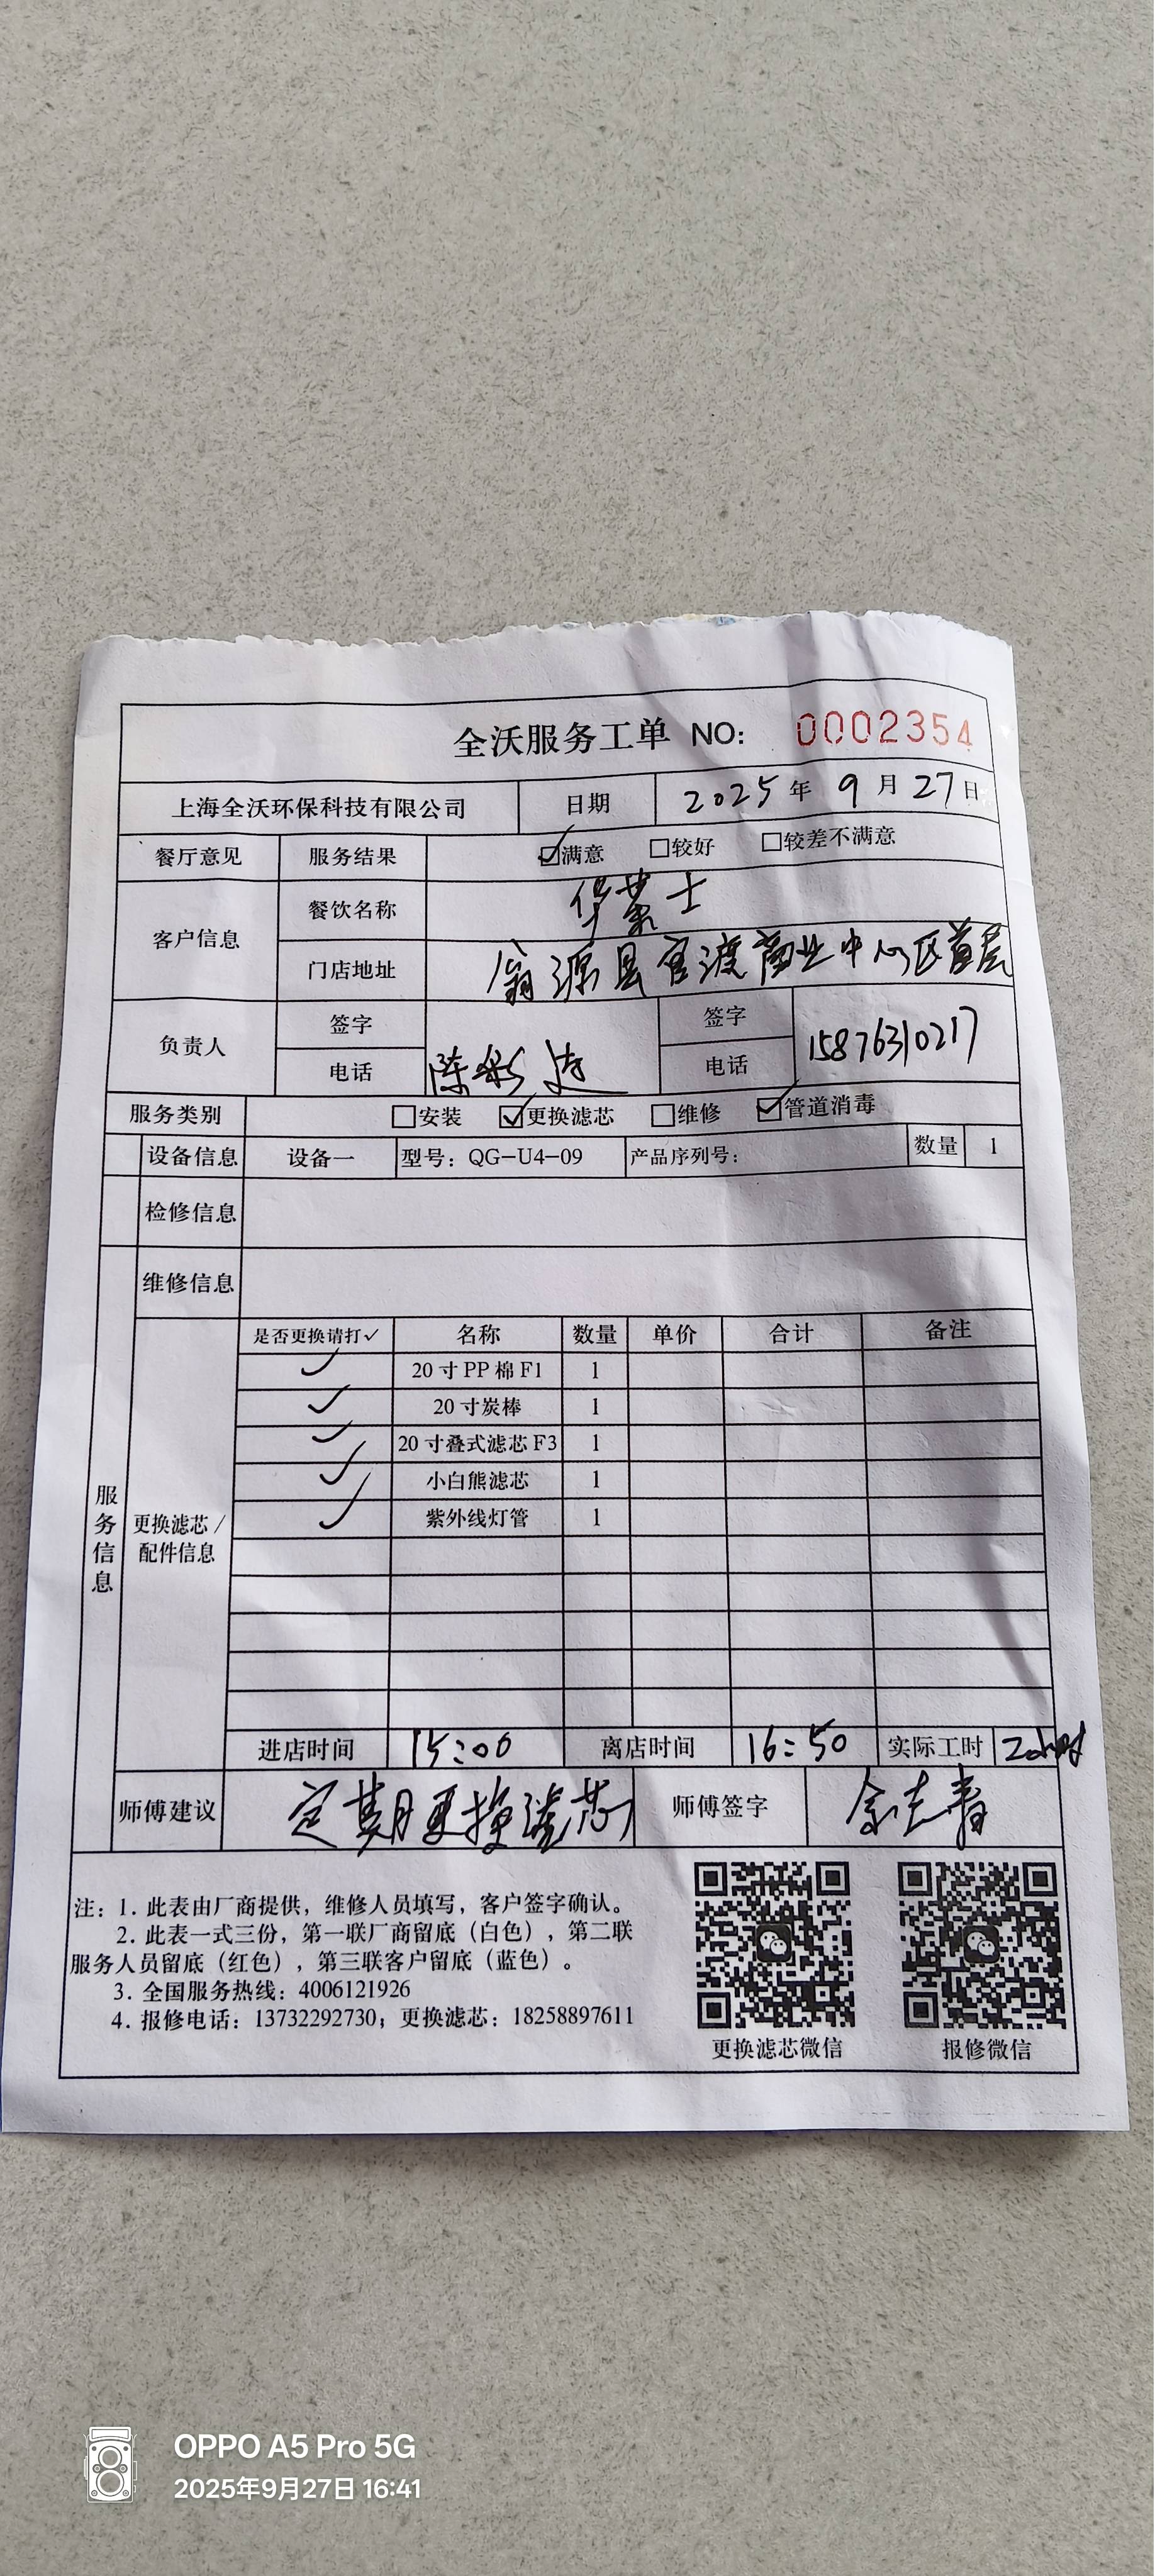 全沃服务工单 NO: 0002354
上海全沃环保科技有限公司 日期 2025年9月27日
餐厅意见 服务结果 ☑满意 □较好 □较差不满意
客户信息 餐饮名称 华莱士
门店地址 翁源县官渡商业中心区首层
负责人 签字 签字
电话 陈彩 电话 15876310217
服务类别 □安装 ☑更换滤芯 □维修 ☑管道消毒
设备信息 设备一 型号：QG-U4-09 产品序列号： 数量 1
检修信息
维修信息
服务信息
更换滤芯/配件信息
是否更换请打✓ 名称 数量 单价 合计 备注
✓ 20寸PP棉F1 1
✓ 20寸炭棒 1
✓ 20寸叠式滤芯F3 1
✓ 小白熊滤芯 1
✓ 紫外线灯管 1
进店时间 15:00 离店时间 16:50 实际工时 2小时
师傅建议 定期更换滤芯 师傅签字
注：1. 此表由厂商提供，维修人员填写，客户签字确认。
2. 此表一式三份，第一联厂商留底（白色），第二联
服务人员留底（红色），第三联客户留底（蓝色）。
3. 全国服务热线：4006121926
4. 报修电话：13732292730；更换滤芯：18258897611
更换滤芯微信 报修微信
OPPO A5 Pro 5G
2025年9月27日 16:41